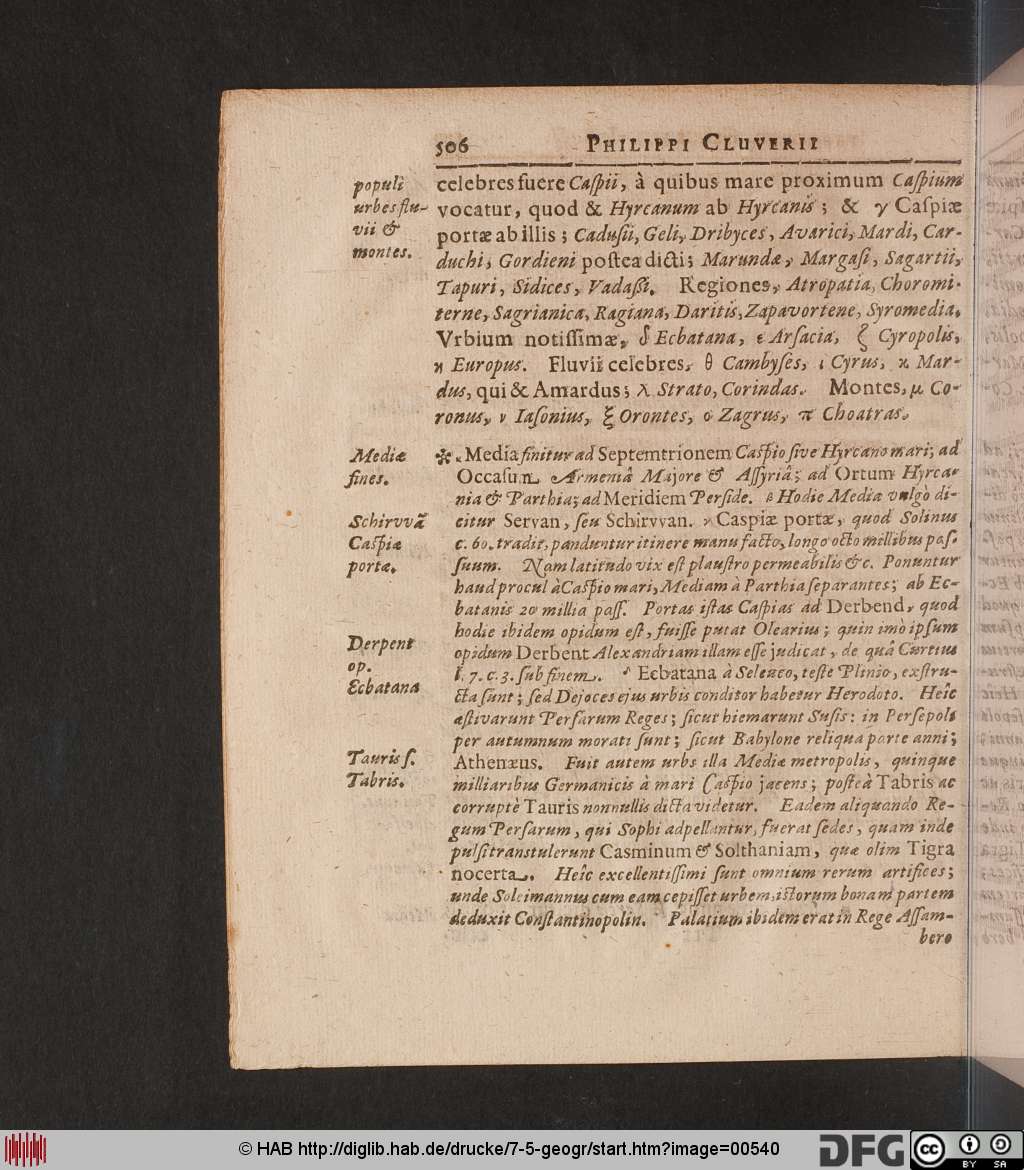 506 PHILIPPI CLUVERII
populi
urbes flu-
vii &
montes.
celebres fuere Caſpii, à quibus mare proximum Caſpium
vocatur, quod & Hyrcanum ab Hyrcanis; & γ Caſpiæ
portæ ab illis; Caduſii, Geli, Dribyces, Avarici, Mardi, Car-
duchi, Gordieni poſtea dicti; Marundæ, Margaſi, Sagartii,
Tapuri, Sidices, Vadaſſi. Regiones, Atropatia, Choromi-
terne, Sagrianica, Ragiana, Daritis, Zapavortene, Syromedia.
Vrbium notiſſimæ, δ Ecbatana, ε Arſacia, ζ Cyropolis,
η Europus. Fluvii celebres, θ Cambyſes, ι Cyrus, κ Mar-
dus, qui & Amardus; λ Strato, Corindas. Montes, μ Co-
ronus, ν Iaſonius, ξ Orontes, ο Zagrus, π Choatras.
Mediæ
fines.
Schirvvã
Caſpiæ
portæ.
Derpent
op.
Ecbatana
Tauris ſ.
Tabris.
✻ α Media finitur ad Septemtrionem Caſpio ſive Hyrcano mari; ad
Occaſum Armeniâ Majore & Aſſyriâ; ad Ortum Hyrca-
nia & Parthia; ad Meridiem Perſide. β Hodie Media vulgò di-
citur Servan, ſeu Schirvvan. γ Caſpiæ portæ, quod Solinus
c. 60. tradit, panduntur itinere manu facto, longo octo millibus paſ-
ſuum. Nam latitudo vix eſt plauſtro permeabilis &c. Ponuntur
haud procul à Caſpio mari, Mediam à Parthia ſeparantes; ab Ec-
batanis 20 millia paſſ. Portas iſtas Caſpias ad Derbend, quod
hodie ibidem opidum eſt, fuiſſe putat Olearius; quin imò ipſum
opidum Derbent Alexandriam illam eſſe judicat, de quâ Curtius
l. 7. c. 3. ſub finem. δ Ecbatana à Seleuco, teſte Plinio, exſtru-
cta ſunt; ſed Dejoces ejus urbis conditor habetur Herodoto. Heîc
æſtivarunt Perſarum Reges; ſicut hiemarunt Suſis: in Perſepoli
per autumnum morati ſunt; ſicut Babylone reliqua parte anni;
Athenæus. Fuit autem urbs illa Mediæ metropolis, quinque
milliaribus Germanicis à mari Caſpio jacens; poſteà Tabris ac
corruptè Tauris nonnullis dicta videtur. Eadem aliquando Re-
gum Perſarum, qui Sophi adpellantur, fuerat ſedes, quam inde
pulſi tranſtulerunt Casminum & Solthaniam, quæ olim Tigra
nocerta. Heîc excellentiſſimi ſunt omnium rerum artifices;
unde Soleimannus cum eam cepiſſet urbem, iſtorum bonam partem
deduxit Conſtantinopolin. Palatium ibidem erat in Rege Aſſam-
bero
© HAB http://diglib.hab.de/drucke/7-5-geogr/start.htm?image=00540
DFG
cc BY SA